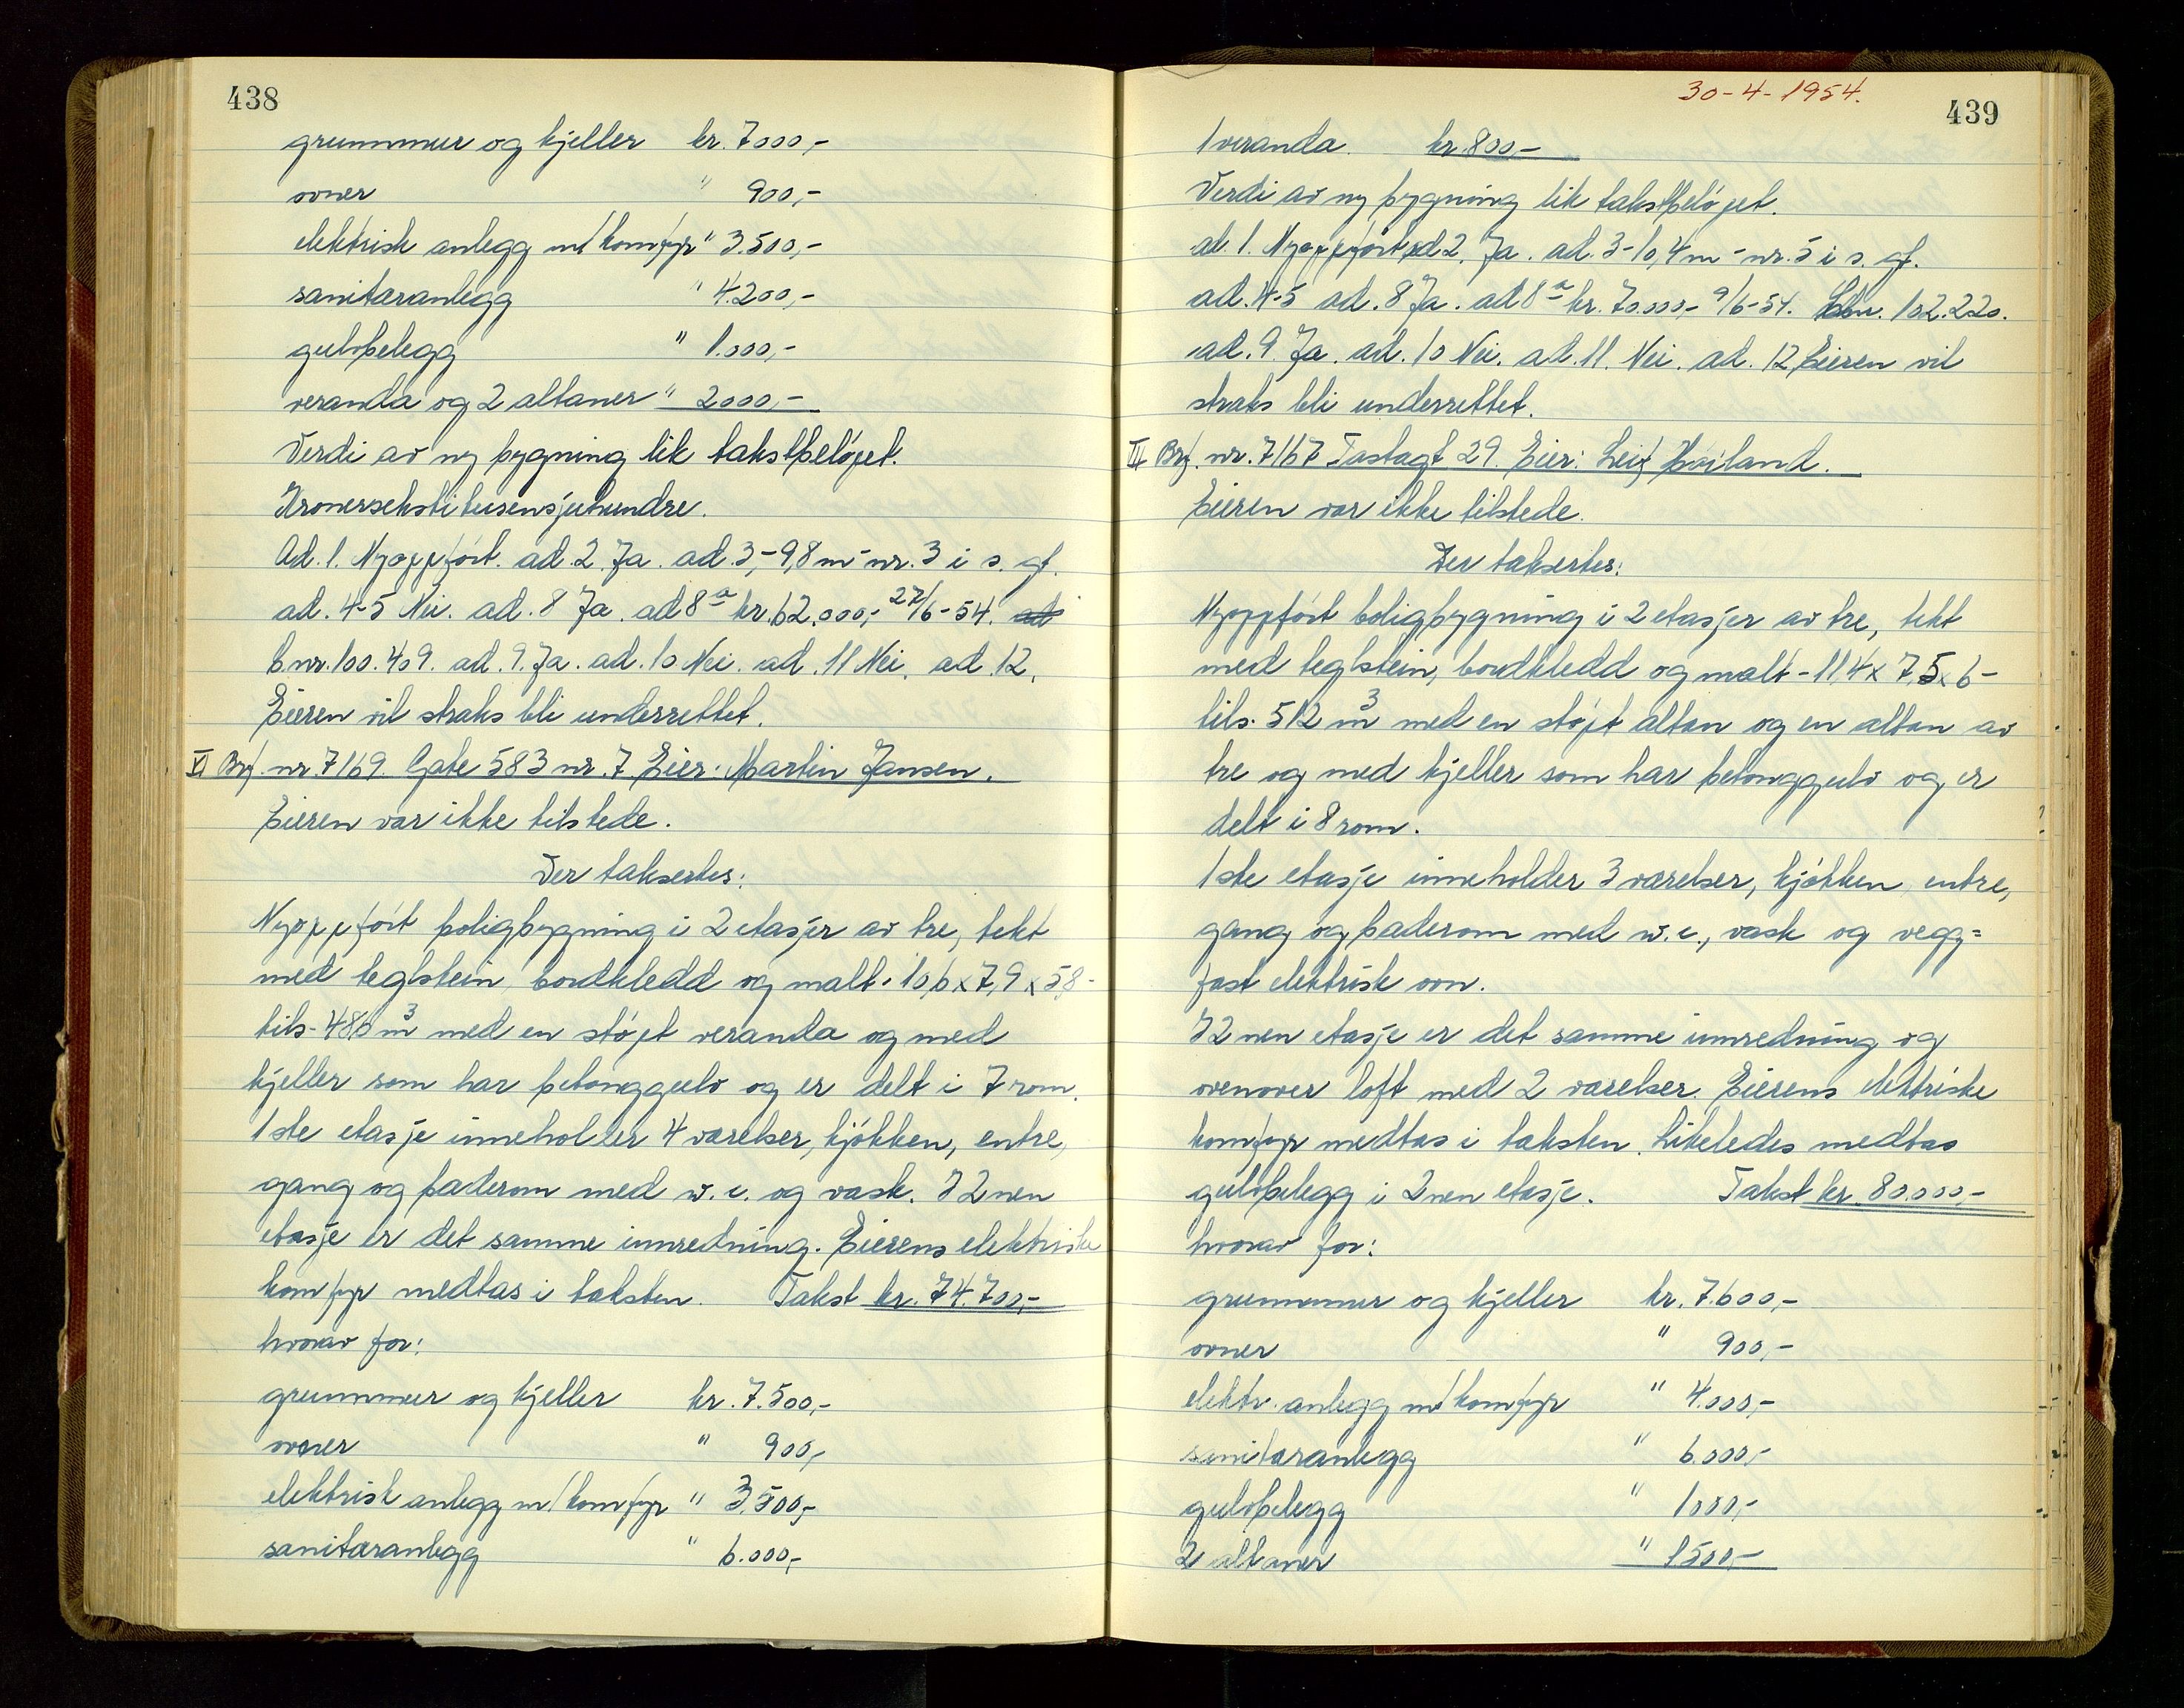 438
grunnmur og kjeller kr. 7000,-
ovner " 900,-
elektrisk anlegg m/komfyr " 3.500,-
sanitæranlegg " 4.200,-
gulvbelegg " 1.000,-
veranda og 2 altaner " 2000,-
Verdi av ny bygning lik takstbeløpet.
Kronersekstitusensjuhundre.
Ad. 1. Nyoppført. ad. 2. Ja. ad. 3,- 9,8 m - nr. 3 i s. gt.
ad. 4-5 Nei. ad. 8 Ja. ad 8 a kr. 62.000,- 22/6-54. ad
b nr. 100.409. ad. 9. Ja. ad. 10 Nei. ad. 11 Nei. ad. 12.
Eieren vil straks bli underrettet.
VI Brf. nr. 7169. Gate 583 nr. 7. Eier: Martin Jansen.
Eieren var ikke tilstede.
Der taksertes:
Nyoppført boligbygning i 2 etasjer av tre, tekt
med teglstein, bordkledd og malt - 10,6 x 7,9 x 5,8 -
tils - 486 m3 med en støpt veranda og med
kjeller som har betonggulv og er delt i 7 rom.
1ste etasje inneholder 4 værelser, kjøkken, entre,
gang og baderom med w.c. og vask. I 2nen
etasje er det samme innredning. Eierens elektriske
komfyr medtas i taksten. Takst kr. 74.700,-
hvorav for:
grunnmur og kjeller kr. 7.500,-
ovner " 900,-
elektrisk anlegg m/komfyr " 3.500,-
sanitæranlegg " 6.000,-
30-4-1954.
439
1 veranda. kr. 800,-
Verdi av ny bygning lik takstbeløpet.
ad. 1. Nyoppført ad 2. Ja. ad. 3- 10,4 m - nr. 5 i s. gt.
ad. 4-5 ad. 8 Ja. ad 8 a kr. 70.000,- 9/6-54. bnr. 102.220.
ad. 9. Ja. ad. 10 Nei. ad. 11. Nei. ad. 12. Eieren vil
straks bli underrettet.
Brf. nr. 7167 Tastagt 29. Eier: Leif Høiland.
Eieren var ikke tilstede.
Der taksertes:
Nyoppført boligbygning i 2 etasjer av tre, tekt
med teglstein, bordkledd og malt - 11,4 x 7,5 x 6 -
tils. 512 m3 med en støpt altan og en altan av
tre og med kjeller som har betonggulv og er
delt i 8 rom.
1ste etasje inneholder 3 værelser, kjøkken, entre,
gang og baderom med w.c., vask og vegg=
fast elektrisk ovn.
I 2nen etasje er det samme innredning og
ovenover loft med 2 værelser. Eierens elektriske
komfyr medtas i taksten. Likeledes medtas
gulvbelegg i 2nen etasje. Takst kr. 80.000,-
hvorav for:
grunnmur og kjeller kr. 7.600,-
ovner " 900,-
elektr. anlegg m/komfyr " 4.000,-
sanitæranlegg " 6.000,-
gulvbelegg " 1000,-
2 altaner " 1.500,-